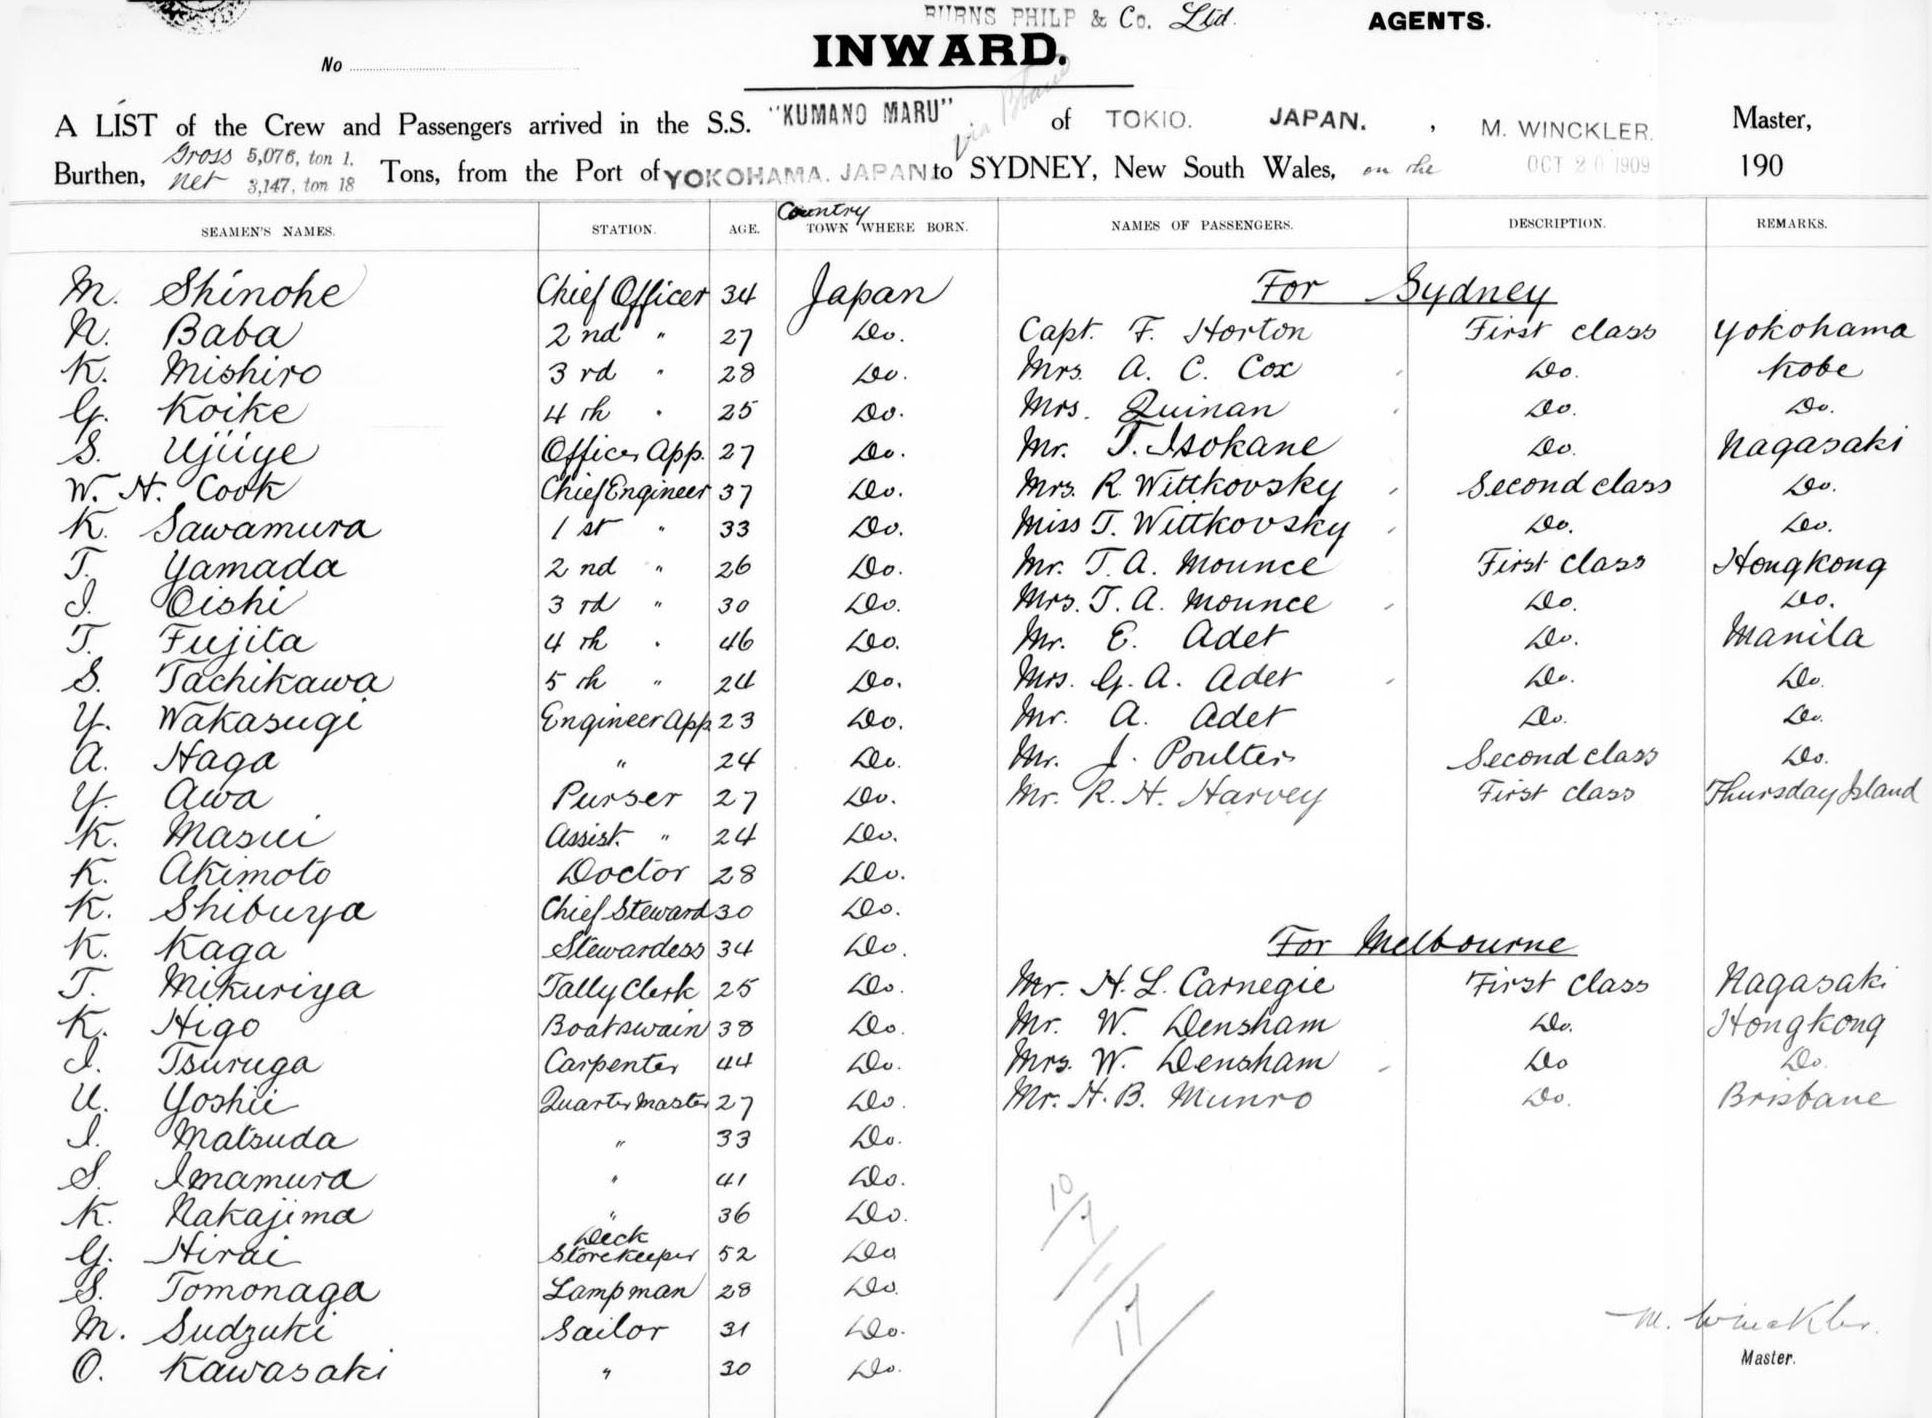 BURNS PHILP & Co. Ltd. AGENTS.
INWARD.
No
A LIST of the Crew and Passengers arrived in the S.S. "KUMANO MARU" via Bbane of TOKIO. JAPAN. , M. WINCKLER. Master,
Burthen, Gross 5,076, ton 1. Net 3,147, ton 18 Tons, from the Port of YOKOHAMA. JAPAN to SYDNEY, New South Wales, on the OCT 20 1909 190
SEAMEN'S NAMES. STATION. AGE. Country TOWN WHERE BORN. NAMES OF PASSENGERS. DESCRIPTION. REMARKS.
M. Shinohe Chief Officer 34 Japan For Sydney
N. Baba 2nd " 27 Do. Capt. F. Horton First class Yokohama
K. Mishiro 3rd " 28 Do. Mrs. A. C. Cox Do. Kobe
G. Koike 4th " 25 Do. Mrs. Quinan Do. Do.
S. Ujiiye Officer App. 27 Do. Mr. T. Isokane Do. Nagasaki
W. H. Cook Chief Engineer 37 Do. Mrs. R. Wittkovsky Second class Do.
K. Sawamura 1st " 33 Do. Miss T. Wittkovsky Do. Do.
T. Yamada 2nd " 26 Do. Mr. T. A. Mounce First class Hongkong
I. Oishi 3rd " 30 Do. Mrs. T. A. Mounce Do. Do.
T. Fujita 4th " 46 Do. Mr. E. Adet Do. Manila
S. Tachikawa 5th " 24 Do. Mrs. G. A. Adet Do. Do.
Y. Wakasugi Engineer App. 23 Do. Mr. A. Adet Do. Do.
A. Haga " 24 Do. Mr. J. Poulter Second class Do.
Y. Awa Purser 27 Do. Mr. R. H. Harvey First class Thursday Island
K. Masui Assist. " 24 Do.
K. Akimoto Doctor 28 Do.
K. Shibuya Chief Steward 30 Do.
K. Kaga Stewardess 34 Do. For Melbourne
T. Mikuriya Tally Clerk 25 Do. Mr. H. L. Carnegie First class Nagasaki
K. Higo Boatswain 38 Do. Mr. W. Densham Do. Hongkong
I. Tsuruga Carpenter 44 Do. Mrs. W. Densham Do Do.
U. Yoshii Quarter Master 27 Do. Mr. H. B. Munro Do. Brisbane
I. Matsuda " 33 Do.
S. Imamura " 41 Do.
K. Nakajima " 36 Do.
G. Hirai Deck Storekeeper 52 Do
S. Tomonaga Lampman 28 Do.
M. Sudzuki Sailor 31 Do.
O. Kawasaki " 30 Do.
M. Winckler.
Master.